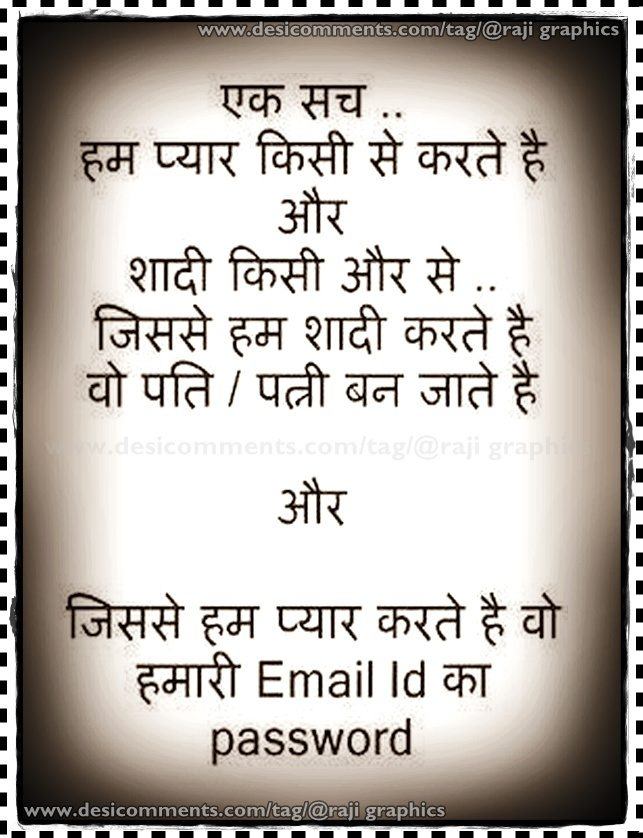 www.desicomments.com/tag/@raji graphics
एक सच ..
हम प्यार किसी से करते है
और
शादी किसी और से ..
जिससे हम शादी करते है
वो पति / पत्नी बन जाते है
www.desicomments.com/tag/@raji graphics
और
जिससे हम प्यार करते है वो
हमारी Email Id का
password
www.desicomments.com/tag/@raji graphics